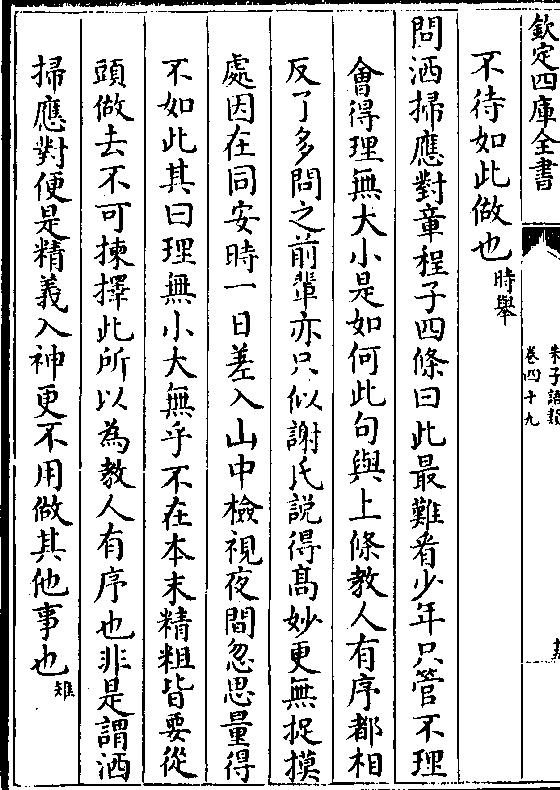 欽定四庫全書
朱子語類
卷四十九
不待如此做也時舉
問洒掃應對章程子四條曰此最難看少年只管不理
會得理無大小是如何此句與上條教人有序都相
反了多問之前輩亦只似謝氏說得髙妙更無捉摸
處因在同安時一日差入山中檢視夜間忽思量得
不如此其曰理無小大無乎不在本末精粗皆要從
頭做去不可揀擇此所以為教人有序也非是謂洒
掃應對便是精義入神更不用做其他事也䧺